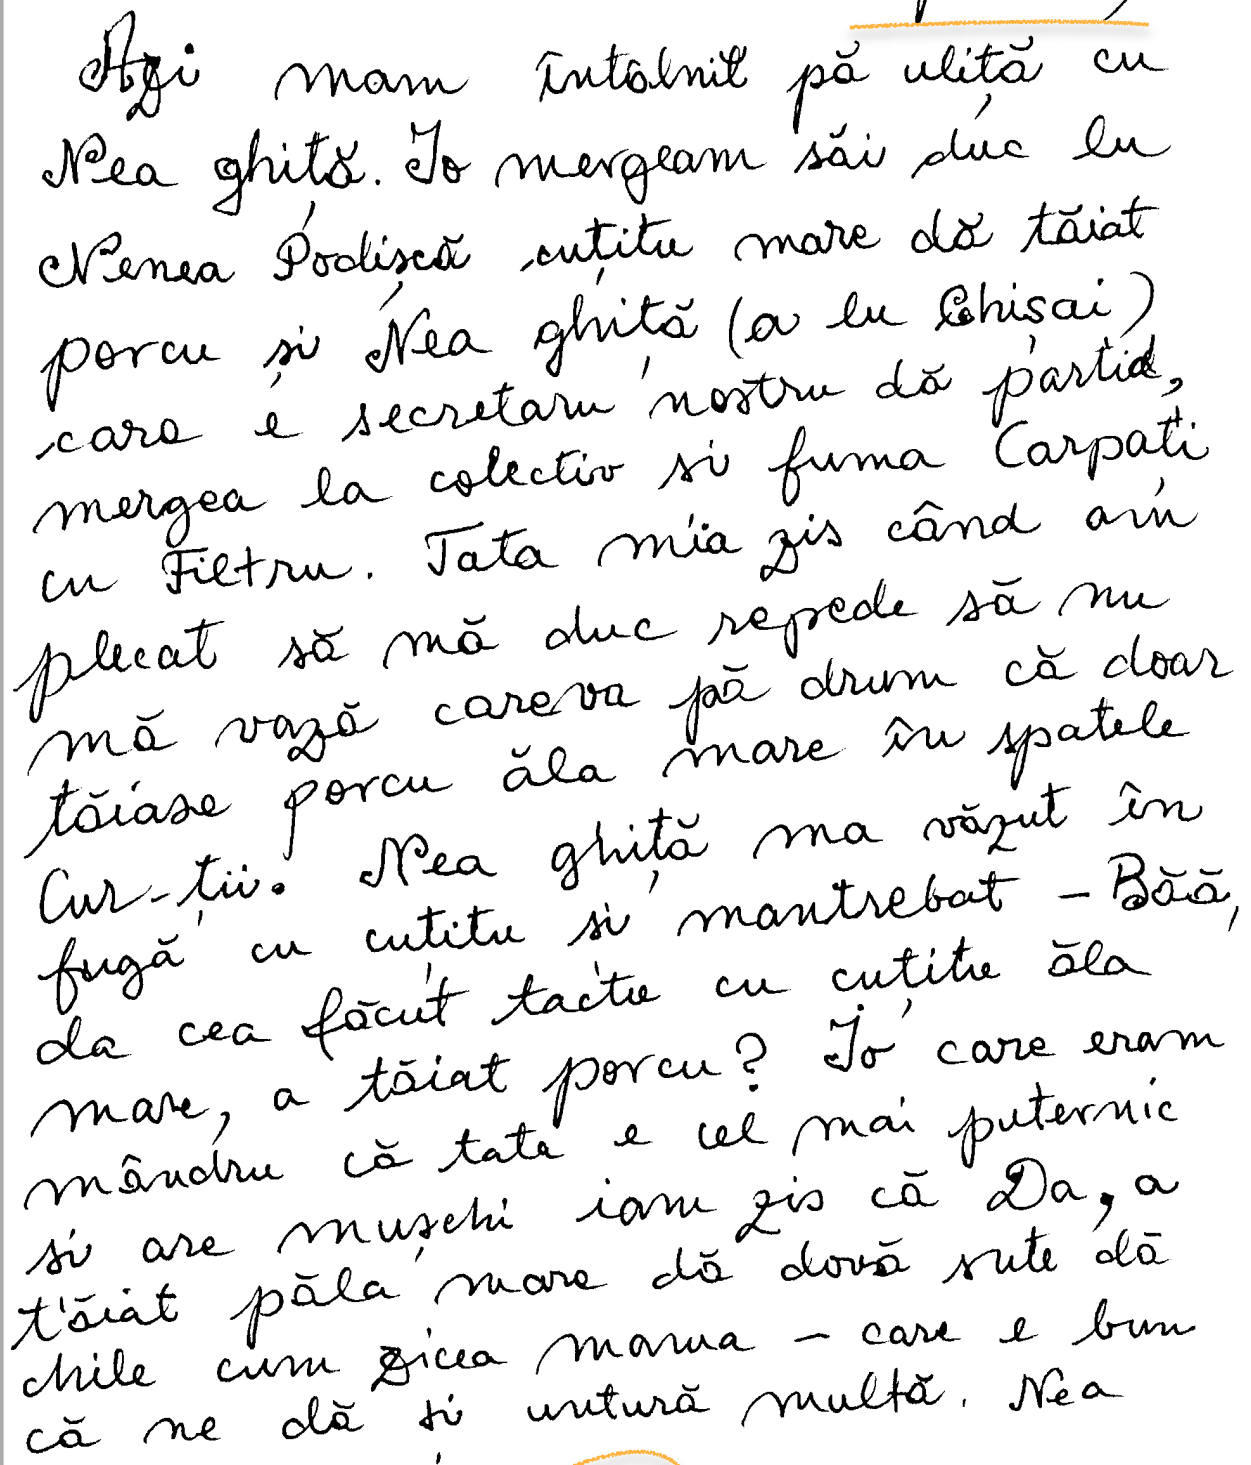 Azi mam întâlnit pă uliță cu
Nea ghiță. Io mergeam săi duc lu
Nenea Podișcă cuțitu mare dă tăiat
porcu și Nea ghiță (a lu Ghișai)
care e secretaru nostru dă partid,
mergea la colectiv si fuma Carpați
cu Filtru. Tata mia zis când am
plecat să mă duc repede să nu
mă vază careva pă drum că doar
tăiase porcu ăla mare în spatele
Cur-ții. Nea ghiță ma văzut în
fugă cu cuțitu si mantrebat - Băă,
da cea făcut tactu cu cuțitu ăla
mare, a tăiat porcu? Io care eram
mândru că tata e cel mai puternic
si are mușchi iam zis că Da, a
tăiat păla mare dă dovă sute dă
chile cum zicea mama - care e bun
că ne dă și untură multă. Nea